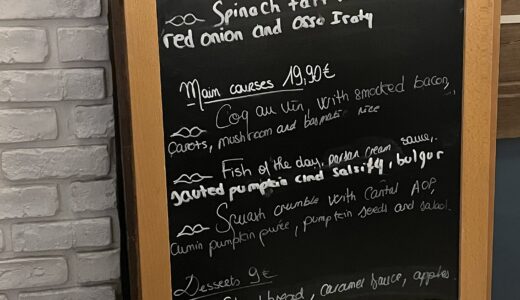 Spinach tart
red onion and osso Iraty
Main courses 19,90€
Coq au vin, with smocked bacon,
carots, mushroom and basmati rice
Fish of the day, cream sauce,
sauted pumpkin and salsify, bulgur
Squash crumble with Cantal AOP,
cumin pumpkin purée, pumpkin seeds and salad.
Desserts 9€
bread, caramel sauce, apples